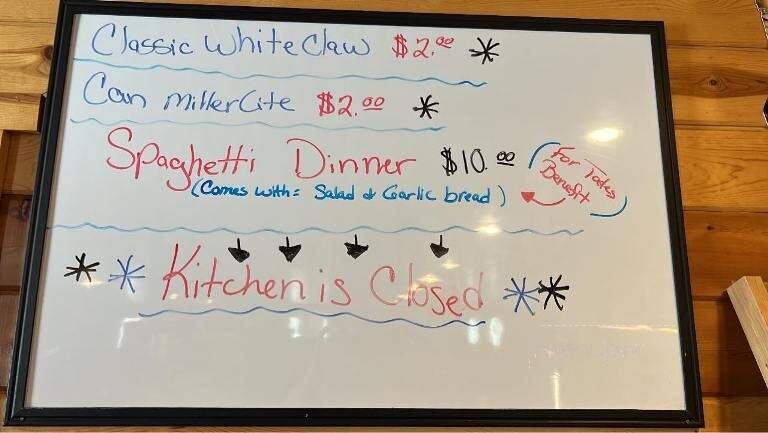 Classic White Claw $2.00 *
Can Miller Lite $2.00 *
Spaghetti Dinner $10.00
(Comes with: Salad & Garlic bread)
For Todays
Benefit
* * Kitchen is Closed * *